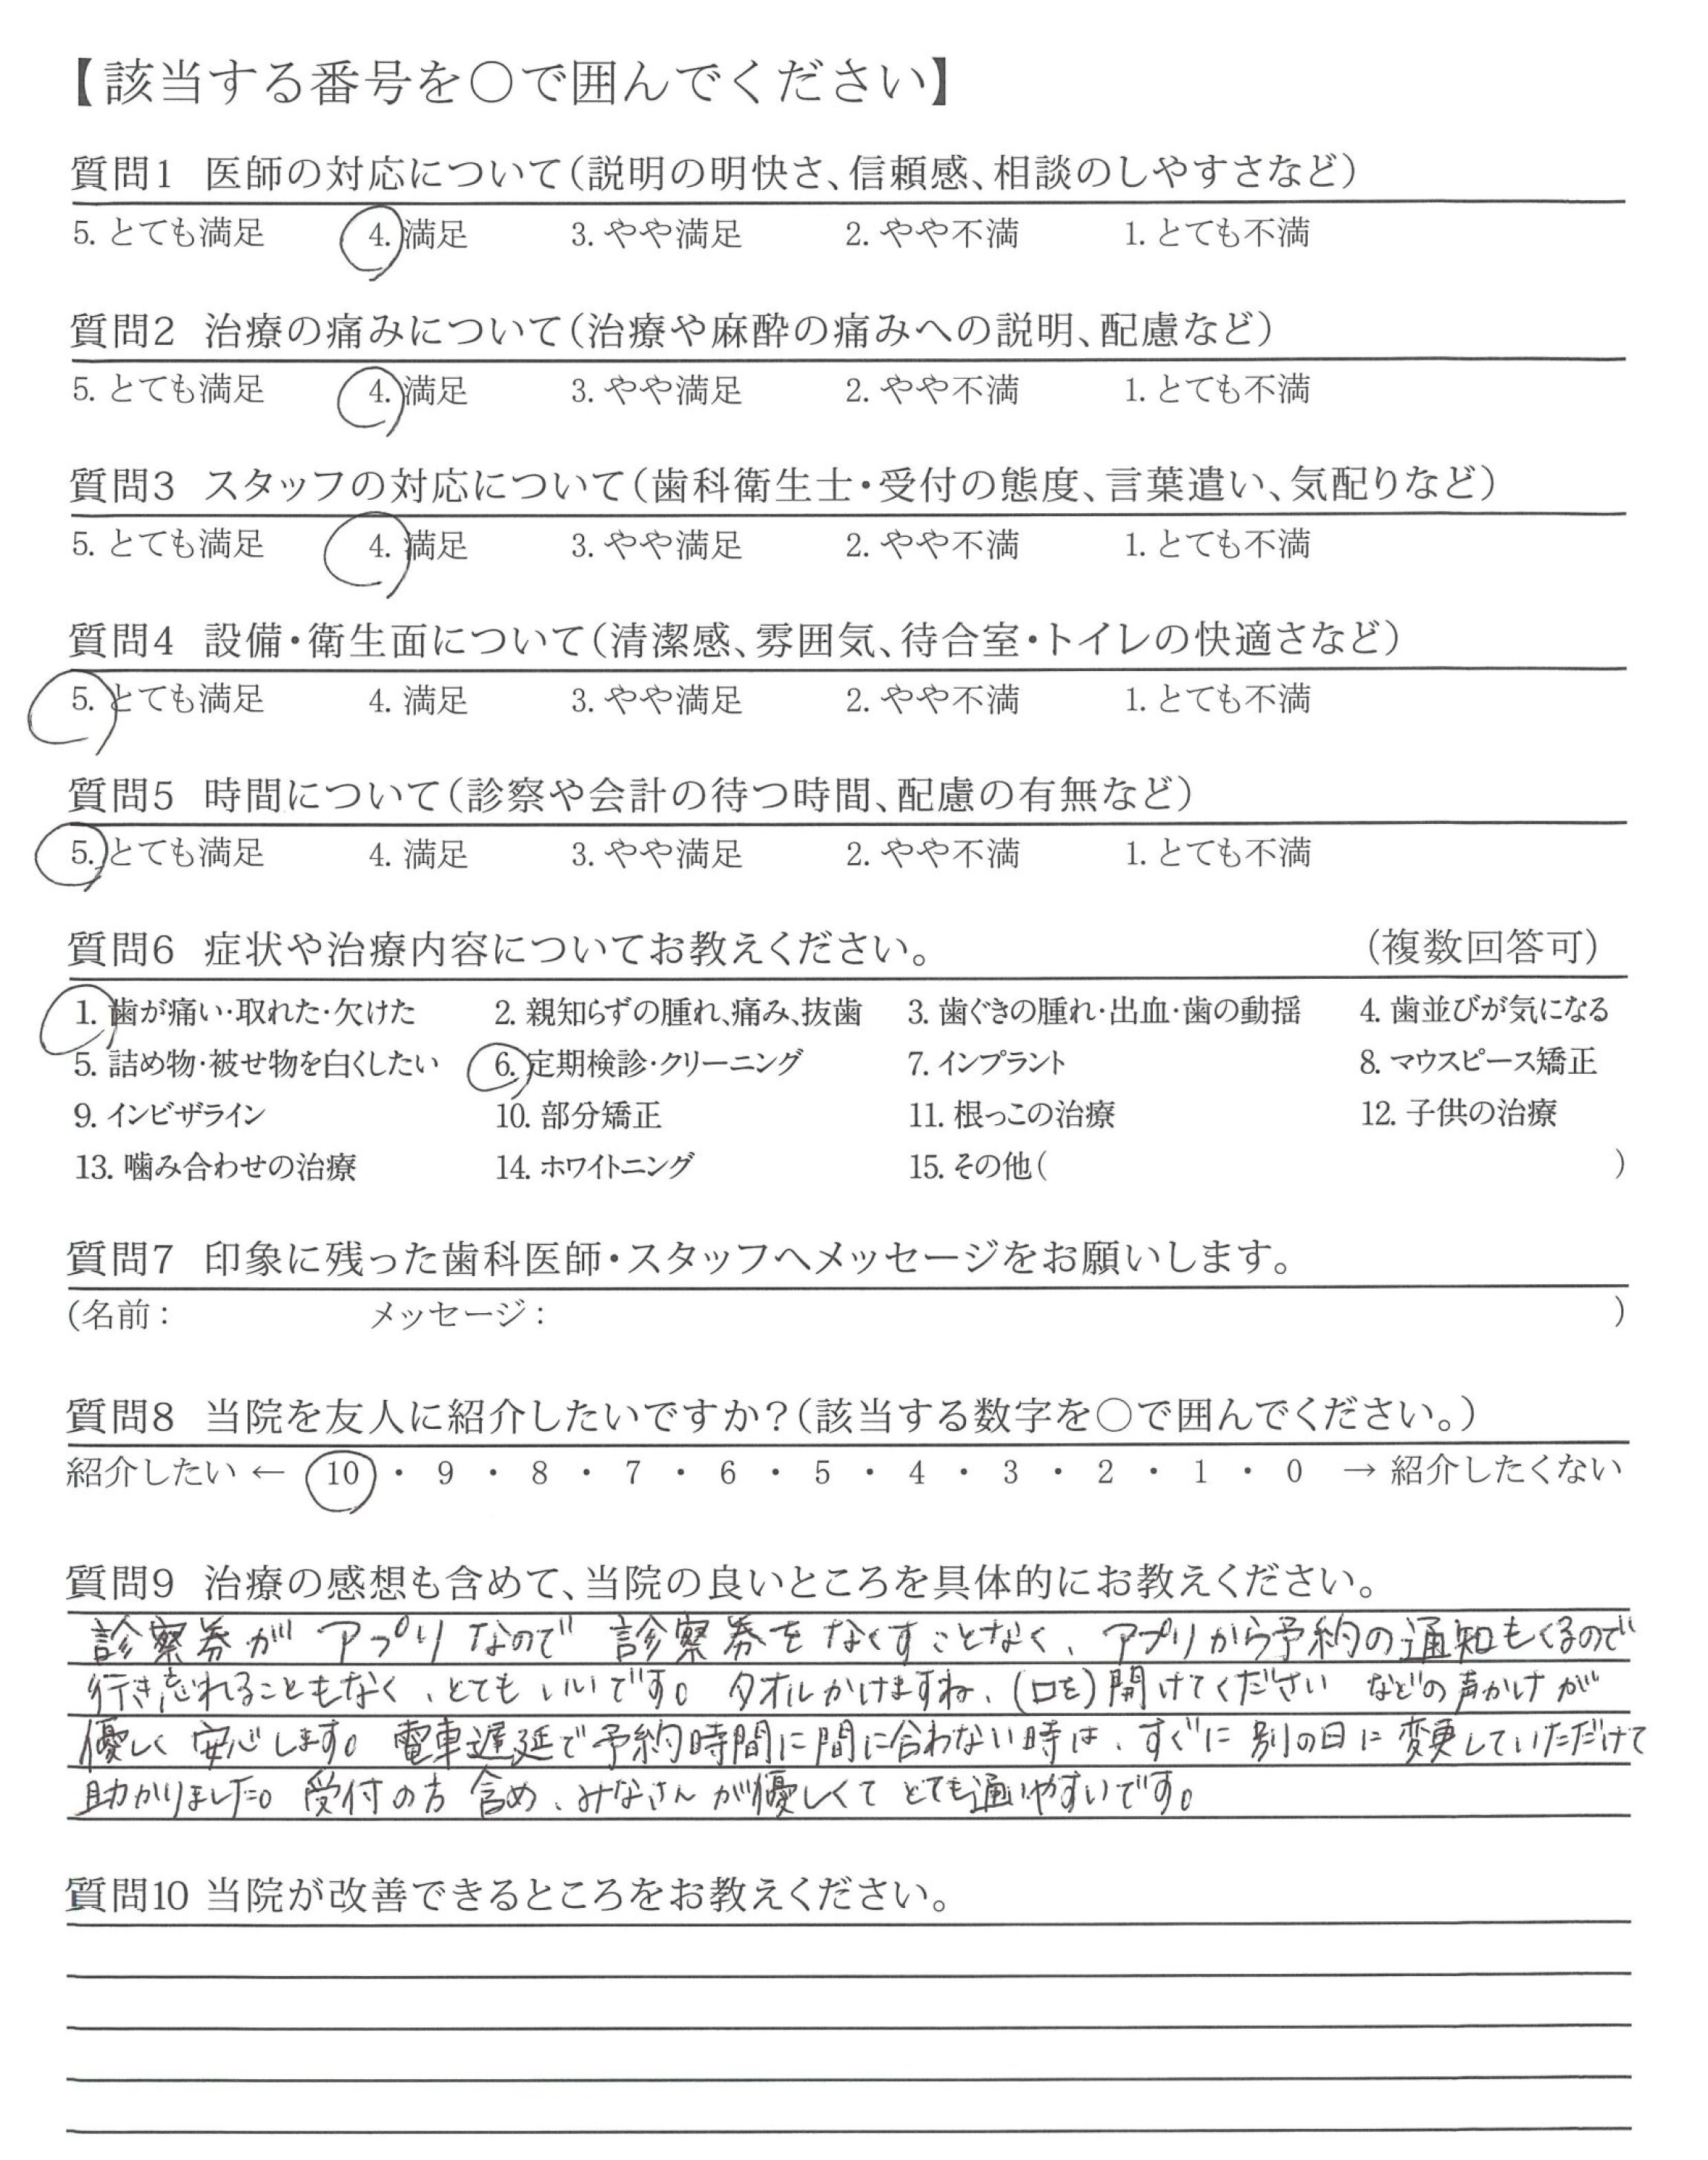 【該当する番号を○で囲んでください】
質問1 医師の対応について(説明の明快さ、信頼感、相談のしやすさなど)
5. とても満足 4. 満足 3. やや満足 2. やや不満 1. とても不満
質問2 治療の痛みについて(治療や麻酔の痛みへの説明、配慮など)
5. とても満足 4. 満足 3. やや満足 2. やや不満 1. とても不満
質問3 スタッフの対応について(歯科衛生士・受付の態度、言葉遣い、気配りなど)
5. とても満足 4. 満足 3. やや満足 2. やや不満 1. とても不満
質問4 設備・衛生面について(清潔感、雰囲気、待合室・トイレの快適さなど)
5. とても満足 4. 満足 3. やや満足 2. やや不満 1. とても不満
質問5 時間について(診察や会計の待つ時間、配慮の有無など)
5. とても満足 4. 満足 3. やや満足 2. やや不満 1. とても不満
質問6 症状や治療内容についてお教えください。 (複数回答可)
1. 歯が痛い・取れた・欠けた 2. 親知らずの腫れ、痛み、抜歯 3. 歯ぐきの腫れ・出血・歯の動揺 4. 歯並びが気になる
5. 詰め物・被せ物を白くしたい 6. 定期検診・クリーニング 7. インプラント 8. マウスピース矯正
9. インビザライン 10. 部分矯正 11. 根っこの治療 12. 子供の治療
13. 噛み合わせの治療 14. ホワイトニング 15. その他( )
質問7 印象に残った歯科医師・スタッフへメッセージをお願いします。
(名前: メッセージ: )
質問8 当院を友人に紹介したいですか?(該当する数字を○で囲んでください。)
紹介したい ← 10 ・ 9 ・ 8 ・ 7 ・ 6 ・ 5 ・ 4 ・ 3 ・ 2 ・ 1 ・ 0 → 紹介したくない
質問9 治療の感想も含めて、当院の良いところを具体的にお教えください。
診察券がアプリなので診察券をなくすことなく、アプリから予約の通知もくるので
行き忘れることもなく、とてもいいです。タオルかけますね、(口を)開けてください などの声かけが
優しく安心します。電車遅延で予約時間に間に合わない時は、すぐに別の日に変更していただけて
助かりました。受付の方含め、みなさんが優しくてとても通いやすいです。
質問10 当院が改善できるところをお教えください。